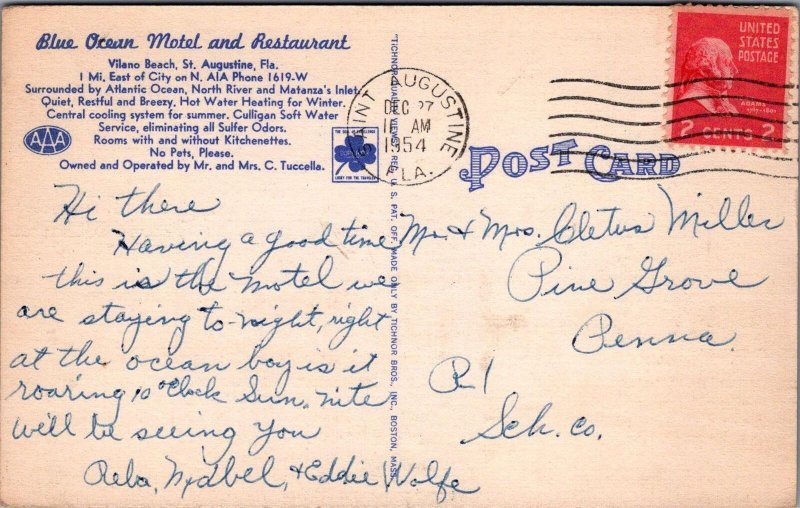 Blue Ocean Motel and Restaurant
Vilano Beach, St. Augustine, Fla.
1 Mi. East of City on N. A1A Phone 1619-W
Surrounded by Atlantic Ocean, North River and Matanza's Inlet.
Quiet, Restful and Breezy. Hot Water Heating for Winter.
Central cooling system for summer. Culligan Soft Water
Service, eliminating all Sulfer Odors.
Rooms with and without Kitchenettes.
No Pets, Please.
Owned and Operated by Mr. and Mrs. C. Tuccella.
AAA
LUCKY FOR THE TRAVELER
SAINT AUGUSTINE
DEC 27
11 AM
1954
FLA.
UNITED
STATES
POSTAGE
ADAMS
1797-1801
2 CENTS 2
POST CARD
"TICHNOR QUALITY VIEWS," REG. U. S. PAT. OFF. MADE ONLY BY TICHNOR BROS., INC., BOSTON, MASS.
Hi there
Having a good time
this is the motel we
are staying to-night, right
at the ocean boy is it
roaring 10 o'Clock Sun. nite
will be seeing you
Reba, Mabel, & Eddie Wolfe
Mr. & Mrs. Cletus Miller
Pine Grove
Penna.
R1
Sch. Co.